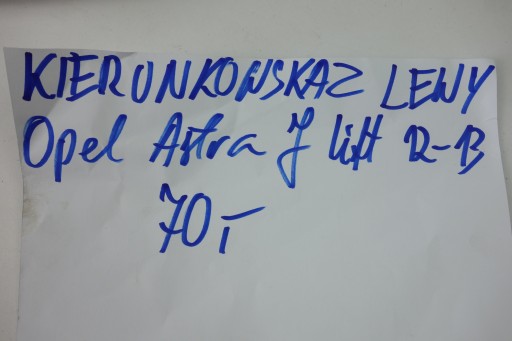 KIERUNKOWSKAZ LEWY
Opel Astra J lift 12-13
70,-